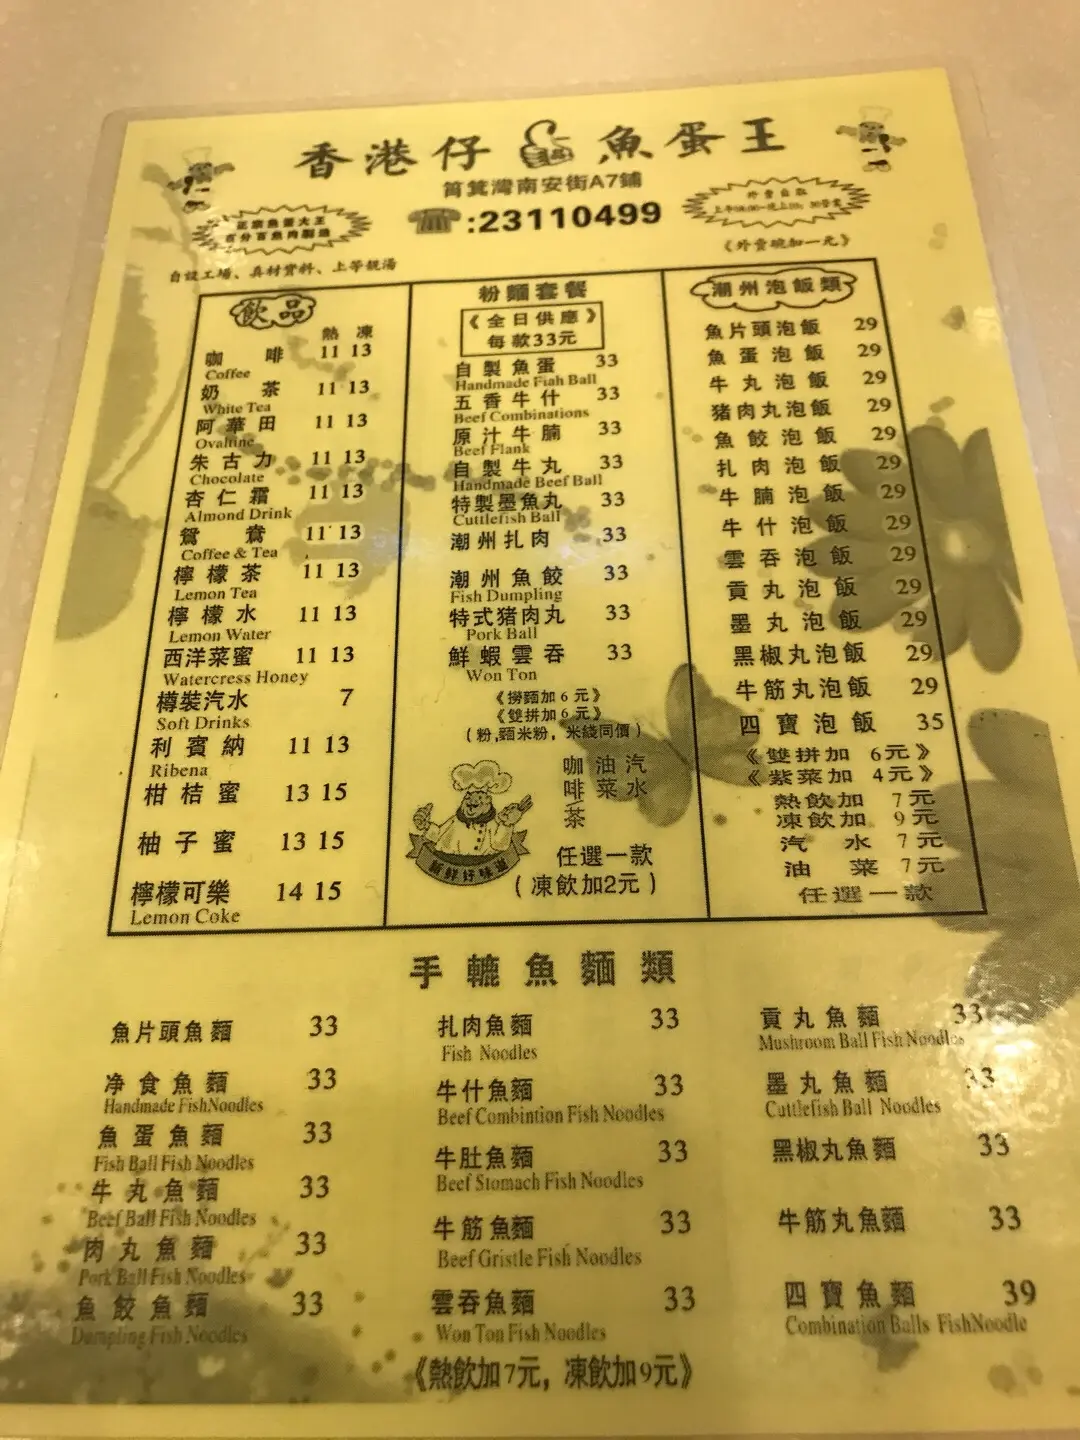 香港仔 魚蛋王
筲箕灣南安街A7鋪
☎:23110499
正宗魚蛋大王
百分百魚肉製造
外賣自取
《外賣碗加一元》
自設工場、真材實料、上等靚湯
飲品
熱 凍
咖啡 11 13
Coffee
奶茶 11 13
White Tea
阿華田 11 13
Ovaltine
朱古力 11 13
Chocolate
杏仁霜 11 13
Almond Drink
鴛鴦 11 13
Coffee & Tea
檸檬茶 11 13
Lemon Tea
檸檬水 11 13
Lemon Water
西洋菜蜜 11 13
Watercress Honey
樽裝汽水 7
Soft Drinks
利賓納 11 13
Ribena
柑桔蜜 13 15
柚子蜜 13 15
檸檬可樂 14 15
Lemon Coke
粉麵套餐
《全日供應》
每款33元
自製魚蛋 33
Handmade Fiah Ball
五香牛什 33
Beef Combinations
原汁牛腩 33
Beef Flank
自製牛丸 33
Handmade Beef Ball
特製墨魚丸 33
Cuttlefish Ball
潮州扎肉 33
潮州魚餃 33
Fish Dumpling
特式猪肉丸 33
Pork Ball
鮮蝦雲吞 33
Won Ton
《撈麵加6元》
《雙拼加6元》
(粉,麵米粉，米綫同價)
咖啡/茶
油菜
汽水
任選一款
(凍飲加2元)
新鮮好味道
潮州泡飯類
魚片頭泡飯 29
魚蛋泡飯 29
牛丸泡飯 29
猪肉丸泡飯 29
魚餃泡飯 29
扎肉泡飯 29
牛腩泡飯 29
牛什泡飯 29
雲吞泡飯 29
貢丸泡飯 29
墨丸泡飯 29
黑椒丸泡飯 29
牛筋丸泡飯 29
四寶泡飯 35
《雙拼加 6元》
《紫菜加 4元》
熱飲加 7元
凍飲加 9元
汽水 7元
油菜 7元
任選一款
手轆魚麵類
魚片頭魚麵 33
净食魚麵 33
Handmade FishNoodles
魚蛋魚麵 33
Fish Ball Fish Noodles
牛丸魚麵 33
Beef Ball Fish Noodles
肉丸魚麵 33
Pork Ball Fish Noodles
魚餃魚麵 33
Dumpling Fish Noodles
扎肉魚麵 33
Fish Noodles
牛什魚麵 33
Beef Combintion Fish Noodles
牛肚魚麵 33
Beef Stomach Fish Noodles
牛筋魚麵 33
Beef Gristle Fish Noodles
雲吞魚麵 33
Won Ton Fish Noodles
貢丸魚麵 33
Mushroom Ball Fish Noodles
墨丸魚麵 33
Cuttlefish Ball Noodles
黑椒丸魚麵 33
牛筋丸魚麵 33
四寶魚麵 39
Combination Balls FishNoodle
《熱飲加7元，凍飲加9元》